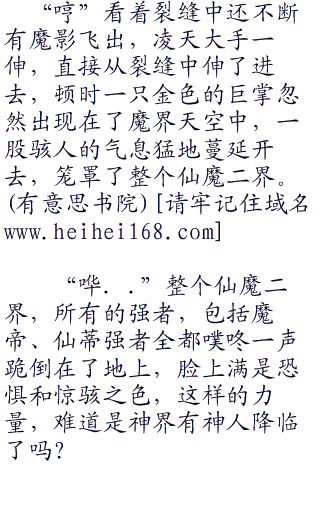 “哼”看着裂缝中还不断
有魔影飞出，凌天大手一
伸，直接从裂缝中伸了进
去，顿时一只金色的巨掌忽
然出现在了魔界天空中，一
股骇人的气息猛地蔓延开
去，笼罩了整个仙魔二界。
(有意思书院)[请牢记住域名
www.heihei168.com]
“哗．．”整个仙魔二
界，所有的强者，包括魔
帝、仙蒂强者全都噗咚一声
跪倒在了地上，脸上满是恐
惧和惊骇之色，这样的力
量，难道是神界有神人降临
了吗?